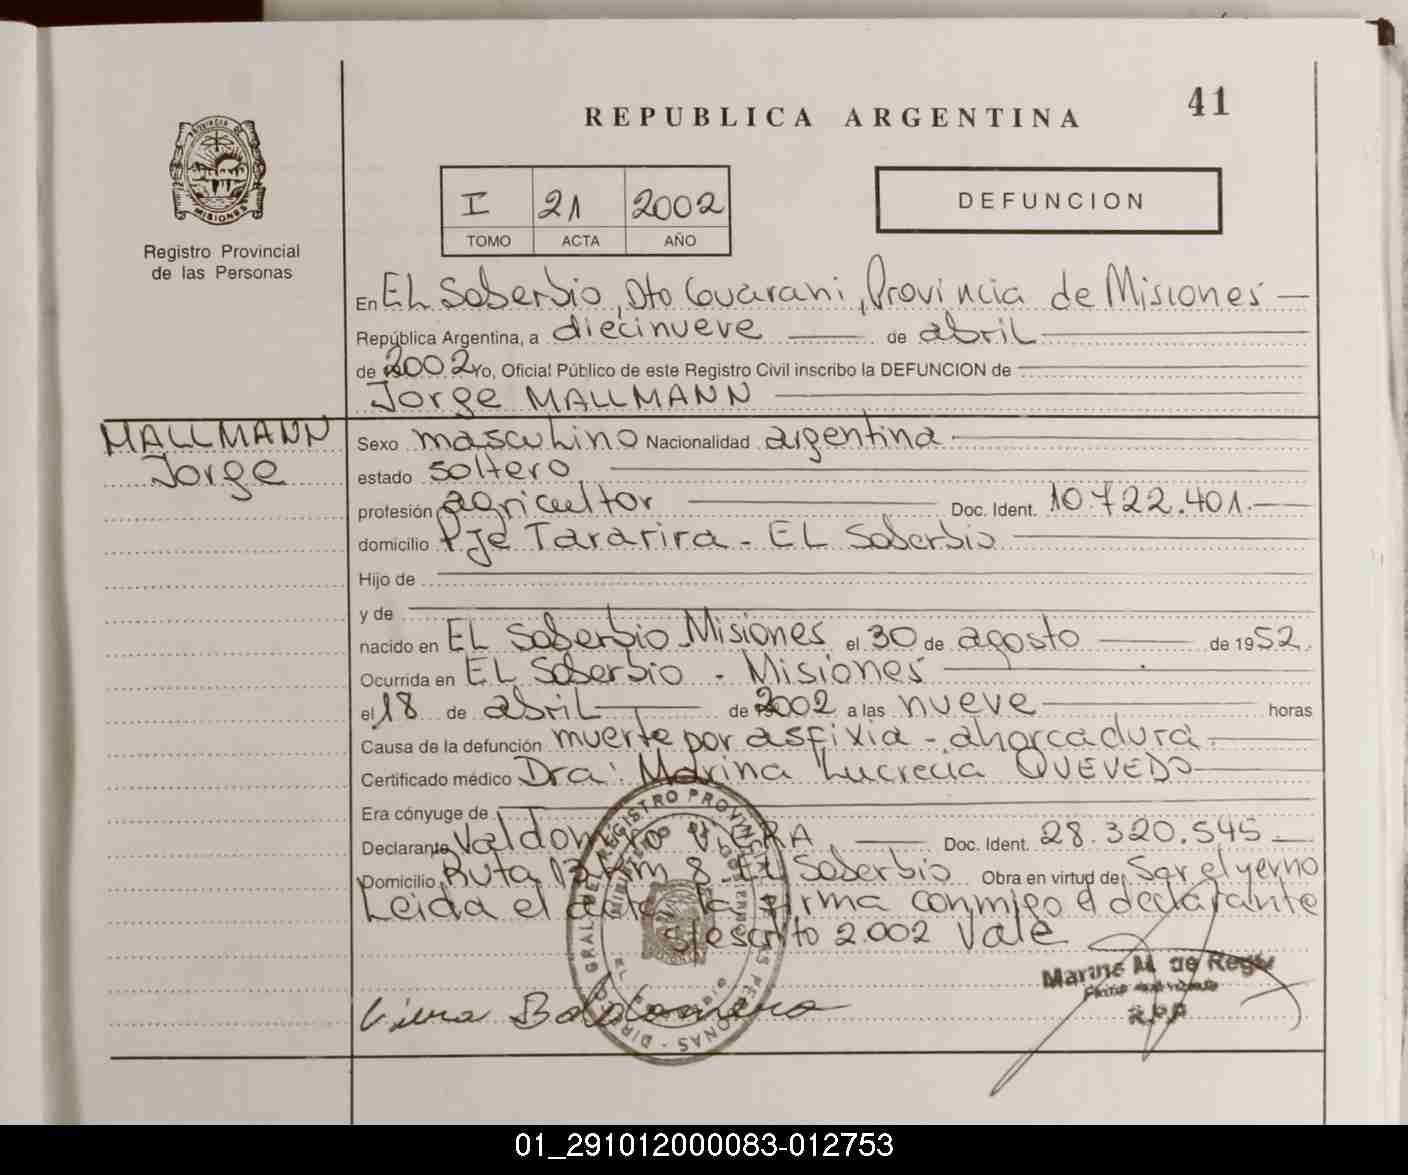 41
REPUBLICA ARGENTINA
PROVINCIA DE
MISIONES
Registro Provincial
de las Personas
I 21 2002
TOMO ACTA AÑO
DEFUNCION
En EL Soberbio, Dto Guarani, Provincia de Misiones
República Argentina, a diecinueve de abril
de 2002 Yo, Oficial Público de este Registro Civil inscribo la DEFUNCION de
Jorge MALLMANN
MALLMANN
Jorge
Sexo masculino Nacionalidad argentina
estado soltero
profesión agricultor Doc. Ident. 10.722.401.
domicilio Pje Tararira - EL Soberbio
Hijo de
y de
nacido en EL Soberbio Misiones el 30 de agosto de 1952.
Ocurrida en EL Soberbio - Misiones
el 18 de abril de 2002 a las nueve horas
Causa de la defunción muerte por asfixia - ahorcadura.
Certificado médico Dra: Marina Lucrecia QUEVEDO
Era cónyuge de
Declarante Valdomiro VIERA Doc. Ident. 28.320.545
Domicilio Ruta 13 Km 8 EL Soberbio Obra en virtud de Ser el yerno
Leida el acta la firma conmigo el declarante
s/escrito 2.002 Vale
Marine M. de
Viera
REGISTRO PROVINCIAL DE LAS PERSONAS
01_291012000083-012753